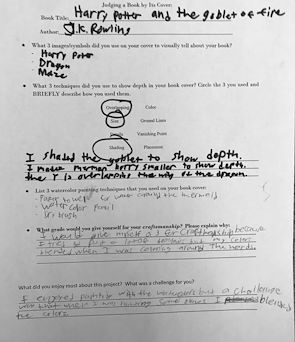 Judging a Book by Its Cover:
Book Title: Harry Potter and the goblet of fire
Author: J.k. Rowling
• What 3 images/symbols did you use on your cover to visually tell about your book?
- Harry Potter
- Dragon
- Maze
• What 3 techniques did you use to show depth in your book cover? Circle the 3 you used and
BRIEFLY describe how you used them.
Overlapping Color
Size Ground Lines
Details Vanishing Point
Shading Placement
I shaded the goblet to show depth.
I made harry smaller to show depth.
the r is overlapping the wing of the dragon.
• List 3 watercolor painting techniques that you used on your book cover:
- Paper towel for water around the mermaid
- Water color pencil
- brush
• What grade would you give yourself for your craftsmanship? Please explain why:
I would give myself a for craftmanship because
I tried to put a lot of but my colors
blended when I was coloring around the
What did you enjoy most about this project? What was a challenge for you?
I enjoyed painting with the watercolors but a challenge
was that when I was painting some places I blended
the colors.